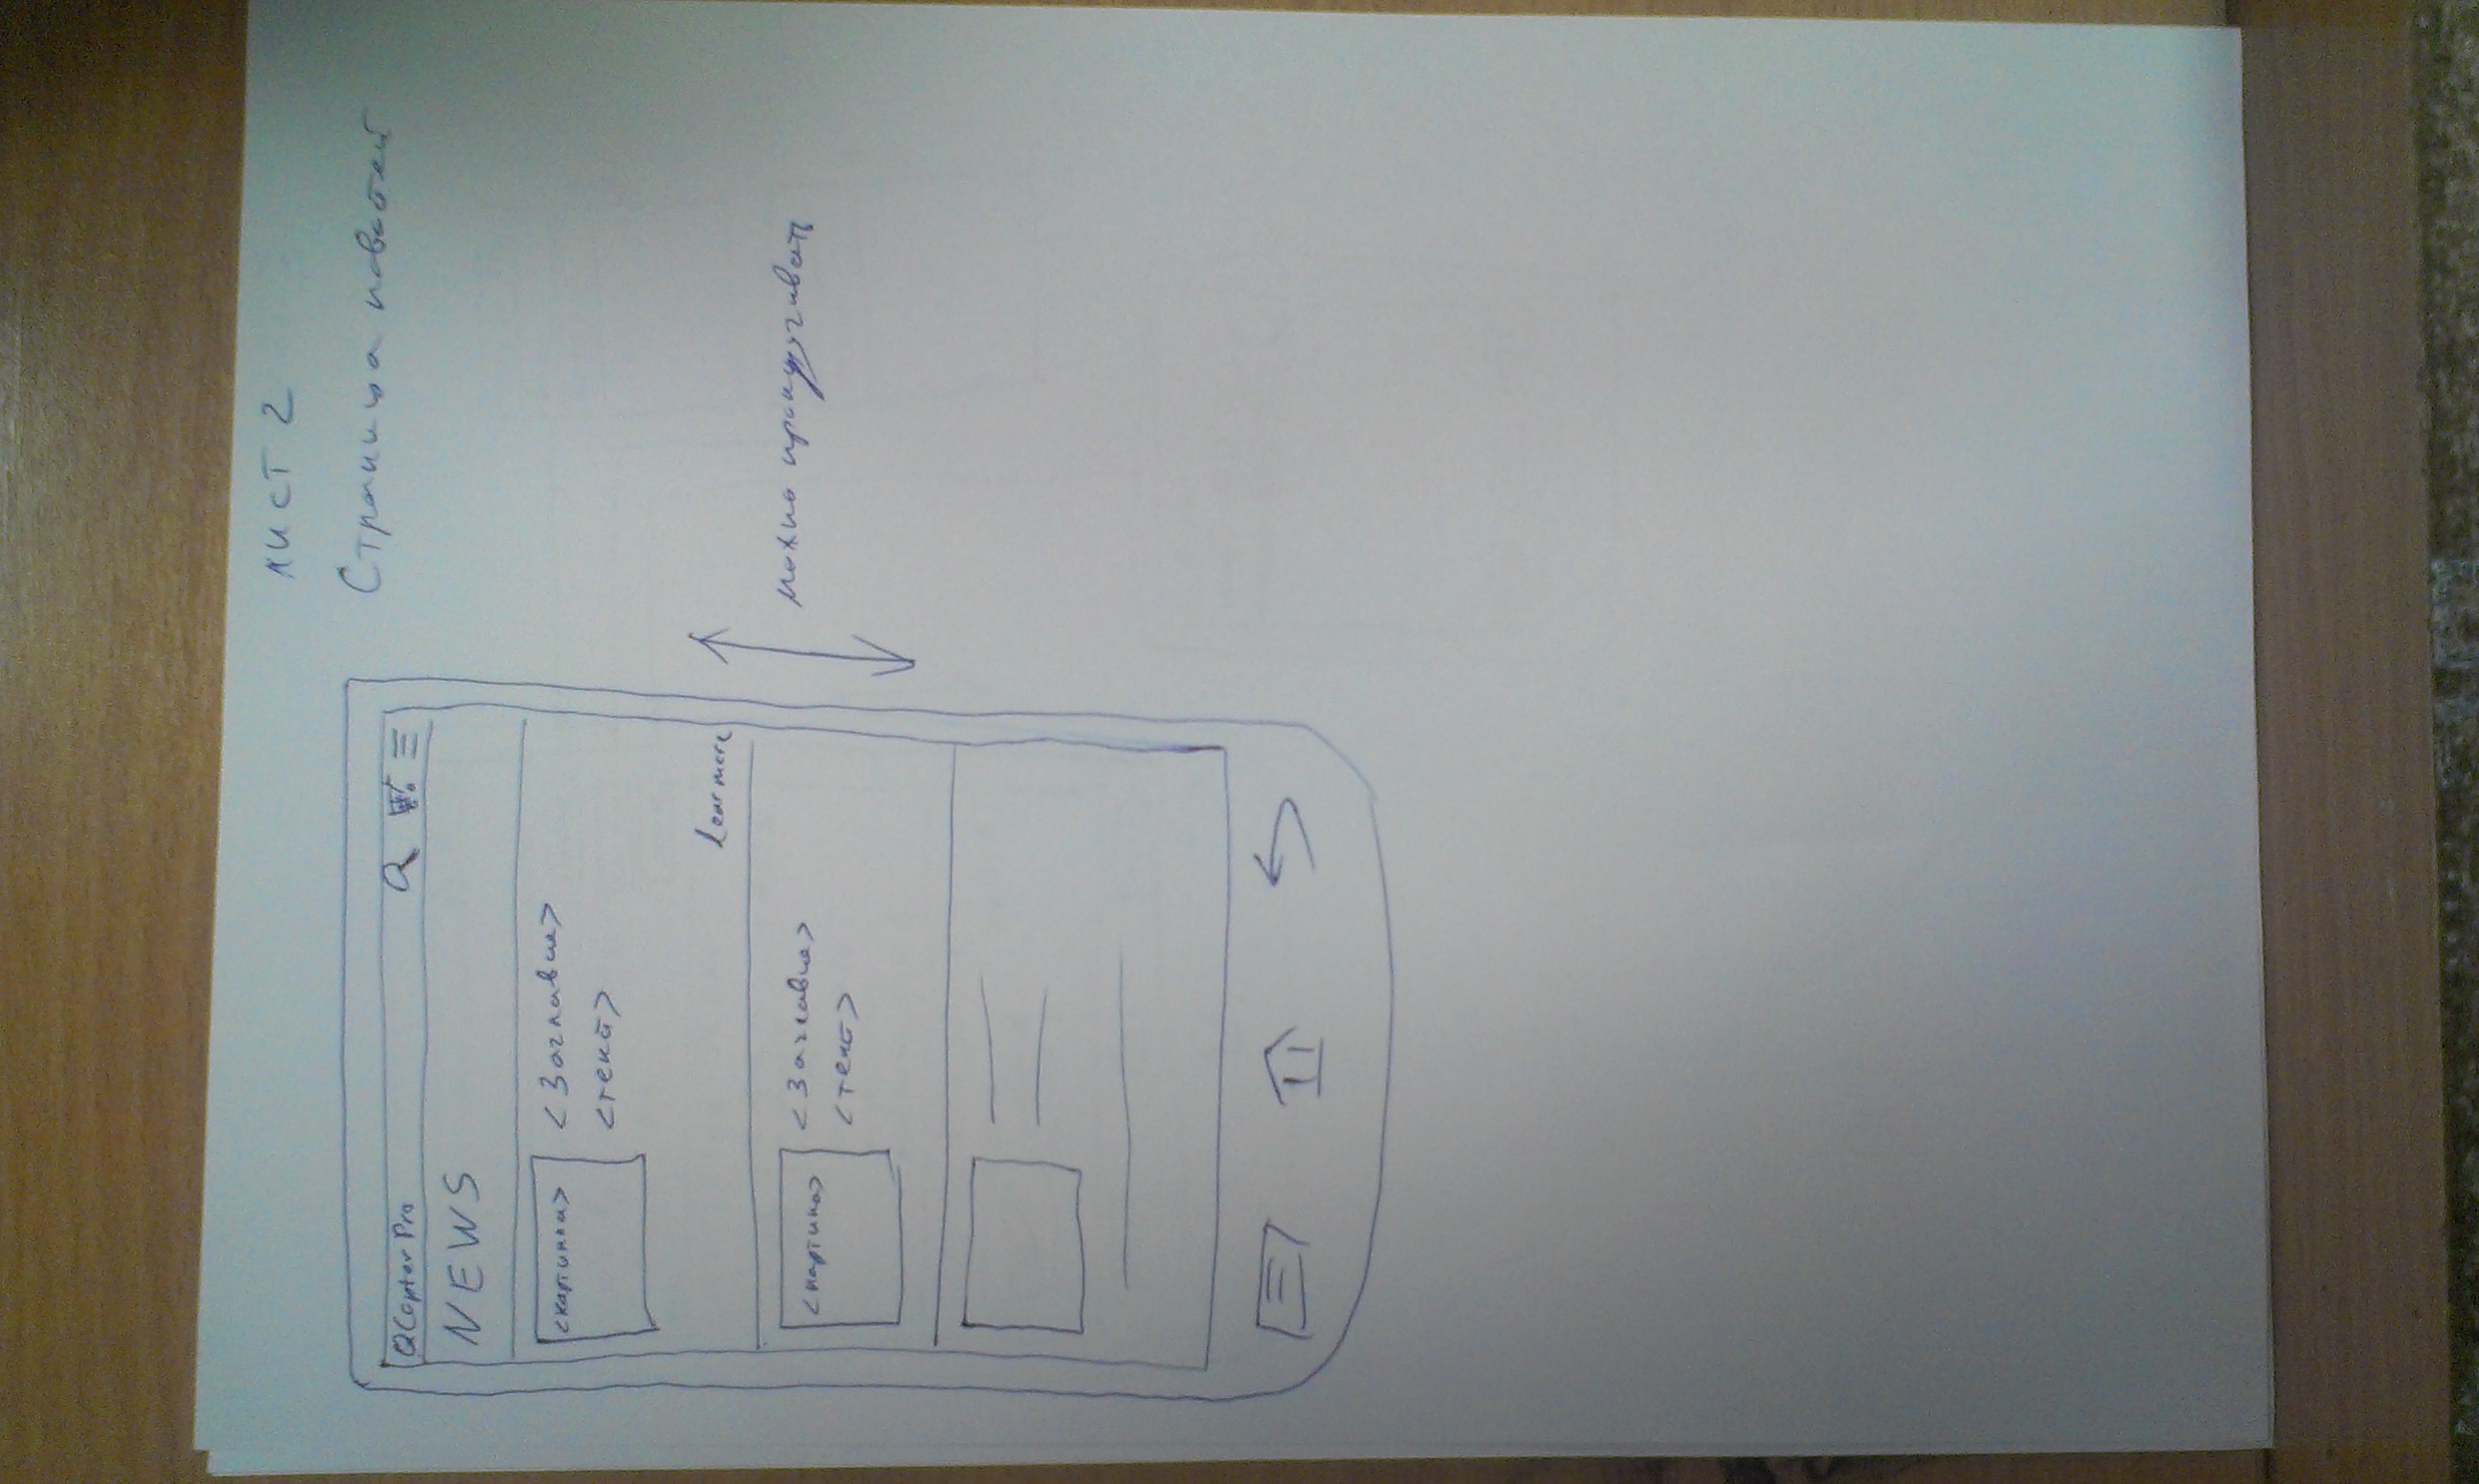 лист 2
Страница новостей
QCopter Pro
NEWS
<картинка> <Заглавие>
<текст>
Lear more
<картинка> <Заглавие>
<текст>
можно прокручивать